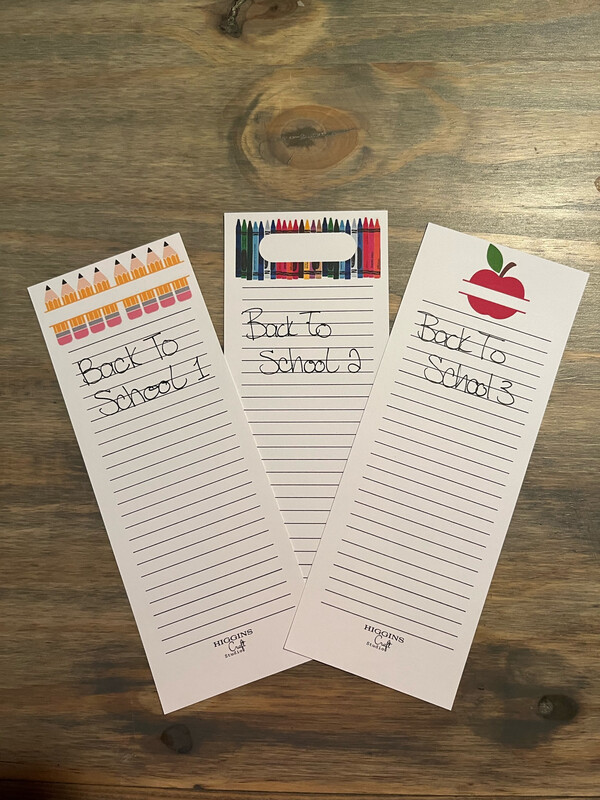 Back To
School 1
HIGGINS
Craft
Studios
Back To
School 2
Back To
School 3
HIGGINS
Craft
Studios